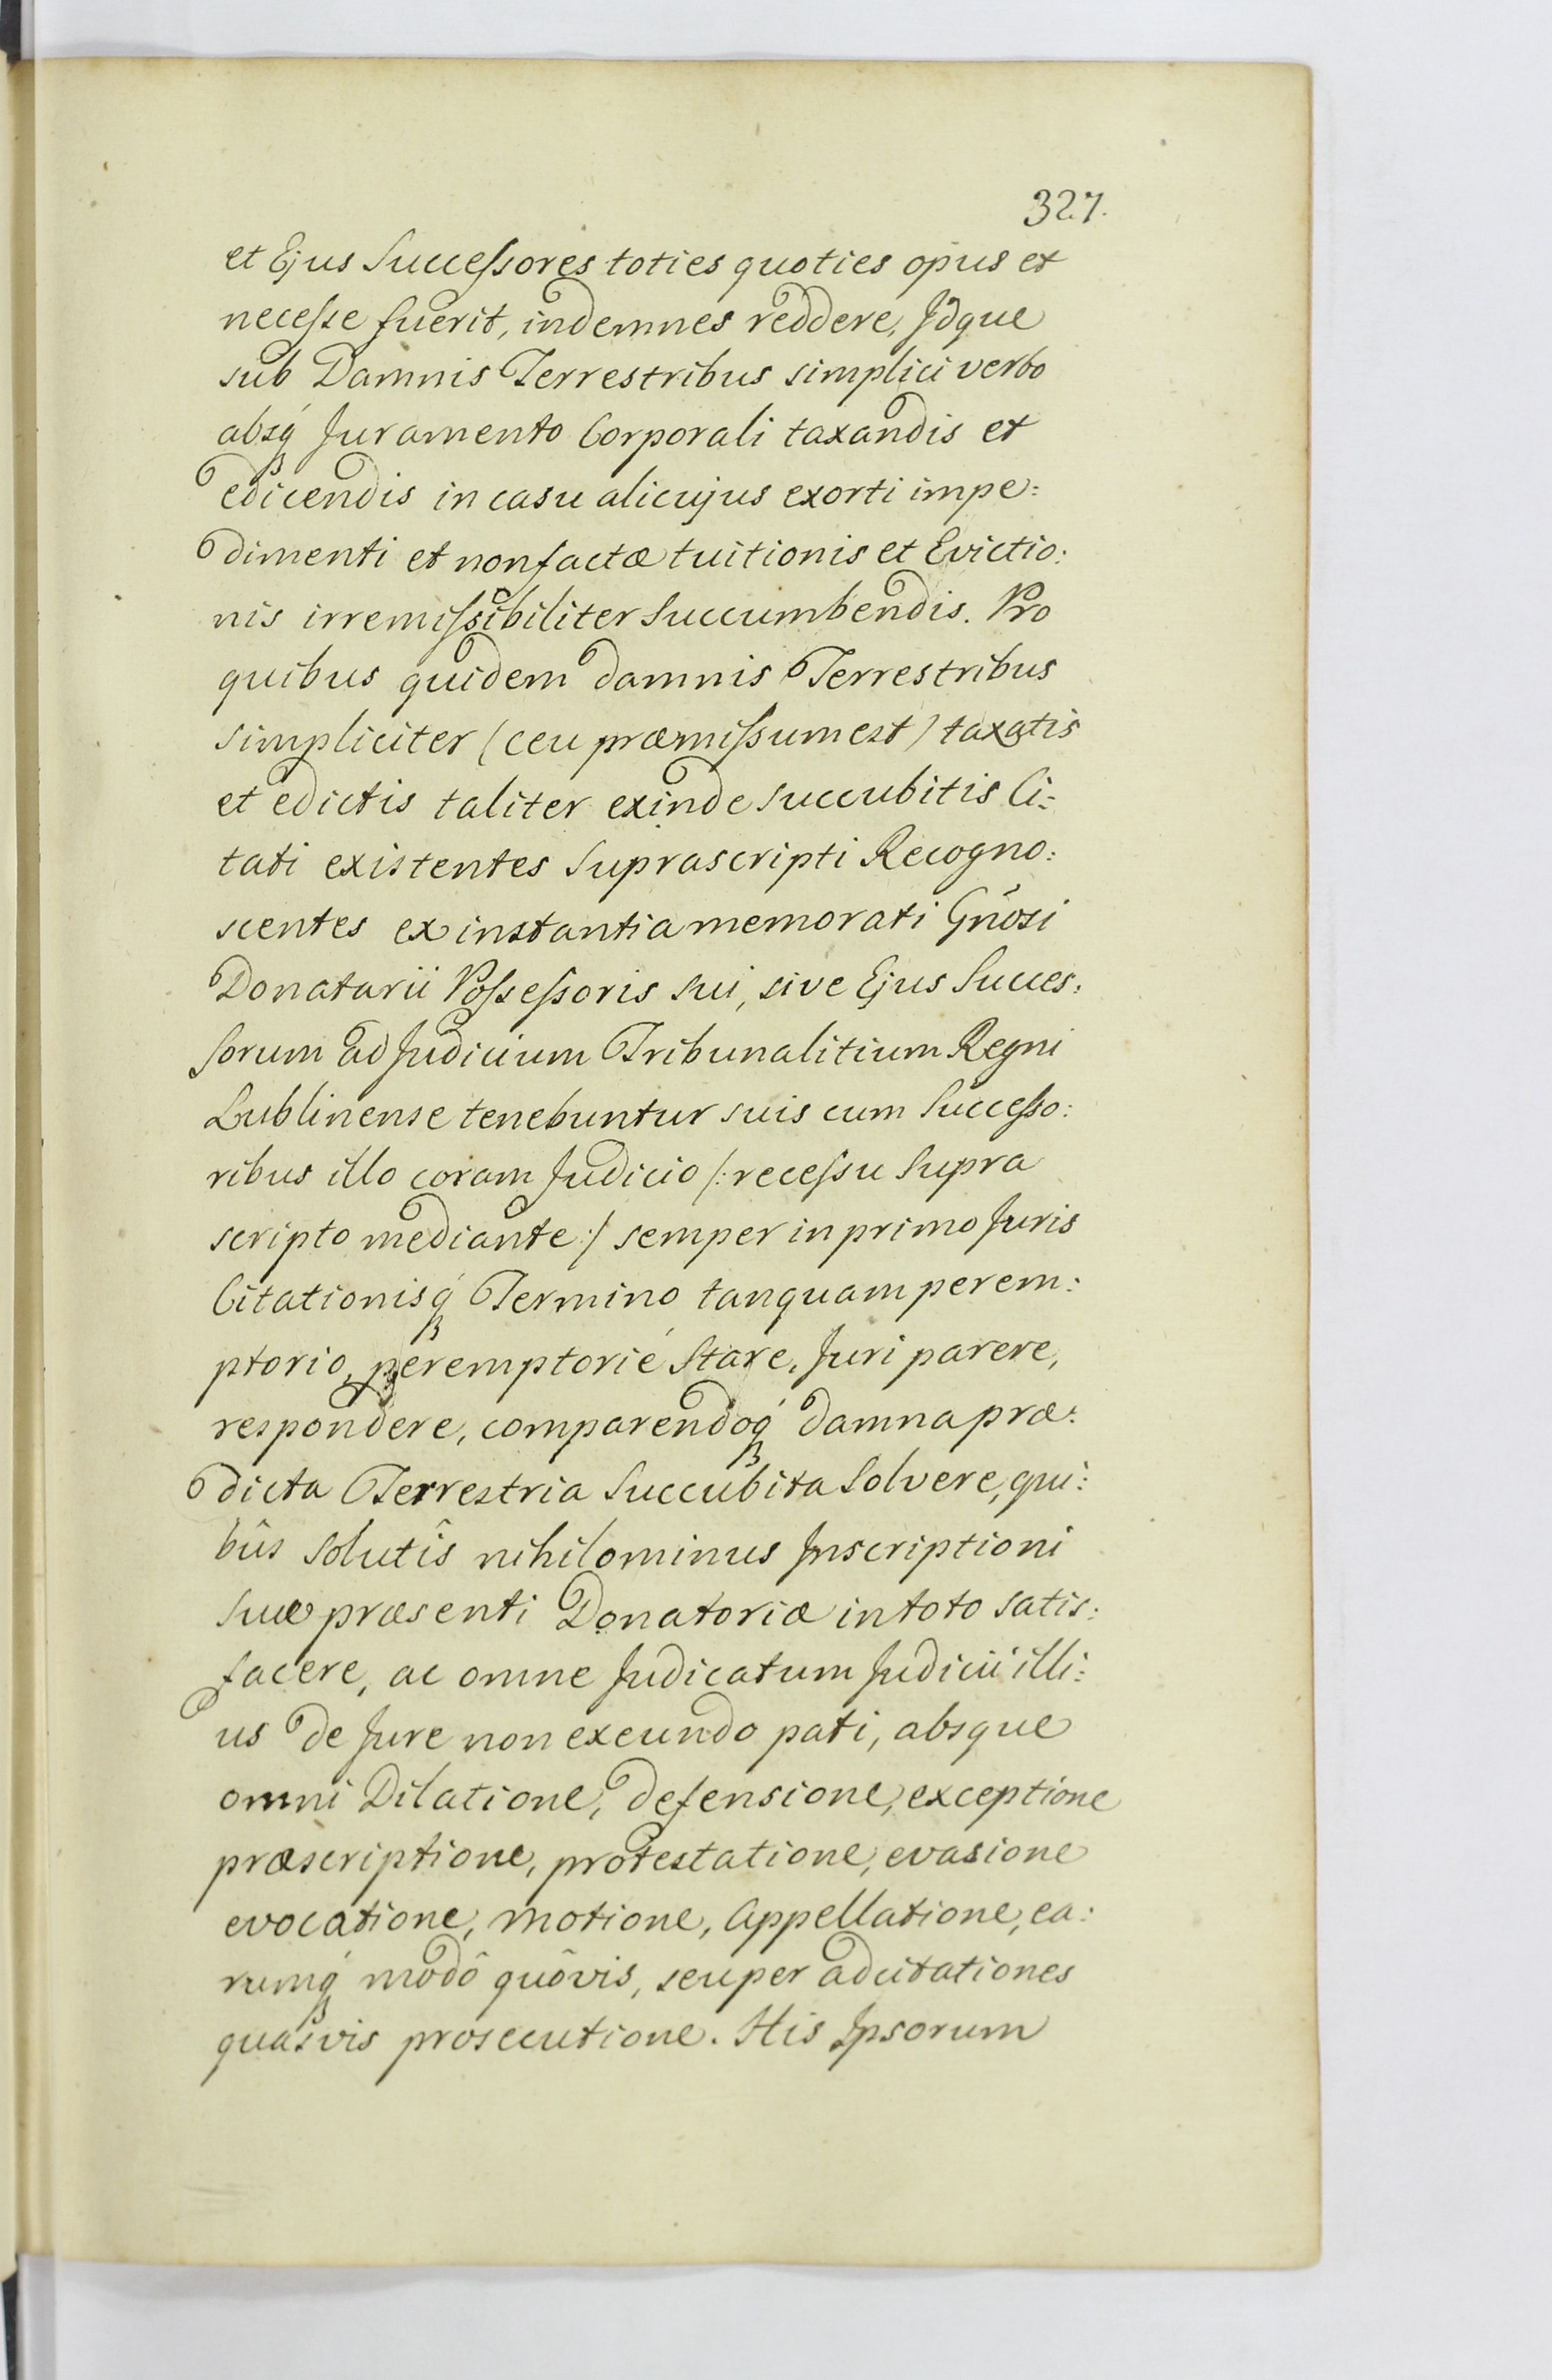 327.
et Ejus Succeſsores toties quoties opus et
neceſse fuerit, indemnes reddere, Idque
sub Damnis Terrestribus simplici verbo
absq́ Juramento Corporali taxandis et
edicendis in casu alicujus exorti impe:
dimenti et non factæ tuitionis et Evictio:
nis irremiſsibiliter Succumbendis. Pro
quibus quidem damnis Terrestribus
simpliciter (ceu præmiſsum est) taxatis
et edictis taliter exinde succubitis Ci:
tati existentes Suprascripti Recogno:
scentes ex instantia memorati Gn̄osi
Donatarii Poſseſsoris sui, sive Ejus Succes:
sorum ad Judicium Tribunalitium Regni
Lublinense tenebuntur suis cum Succeſso:
ribus illo coram Judicio /: receſsu Supra
scripto mediante :/ semper in primo Juris
Citationisq́ Termino tanquam perem:
ptorio, peremptorié Stare, Juri parere,
respondere, comparendoq́ damna præ:
dicta Terrestria Succubita Solvere, qui:
bûs Solutîs nihilominus Inscriptioni
Suæ præsenti Donatoriæ in toto satis:
facere, ac omne Judicatum Judicii illi:
us de Jure non exeundo pati, absque
omni Dilatione, defensione, exceptione
præscriptione, protestatione, evasione
evocatione, motione, Appellatione, ea:
rumq́ modô quôvis, seu per adcitationes
quasvis prosecutione. His Ipsorum